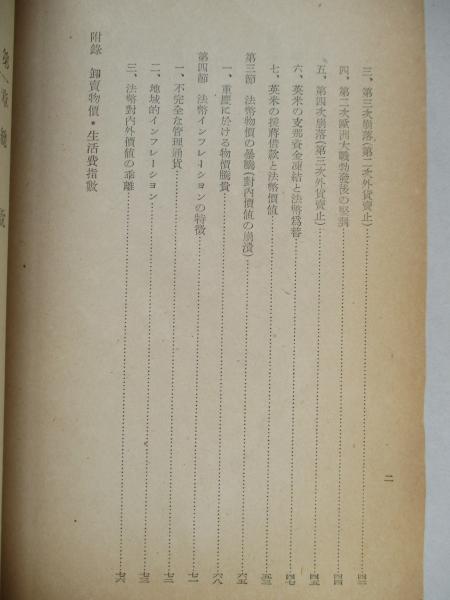 三、第三次崩落(第二次外貨賣止)……四三
四、第二次歐洲大戰勃發後の堅調……四四
五、第四次崩落(第三次外貨賣止)……四五
六、英米の支那資金凍結と法幣爲替……四七
七、英米の援蔣借款と法幣價値……五三
第三節 法幣物價の暴騰(對內價値の崩潰)……六五
一、重慶に於ける物價騰貴……六八
第四節 法幣インフレーションの特徵……七一
一、不完全な管理通貨……七二
二、地域的インフレーション……七三
三、法幣對內外價値の乖離……七六
附錄 卸賣物價・生活費指數
二